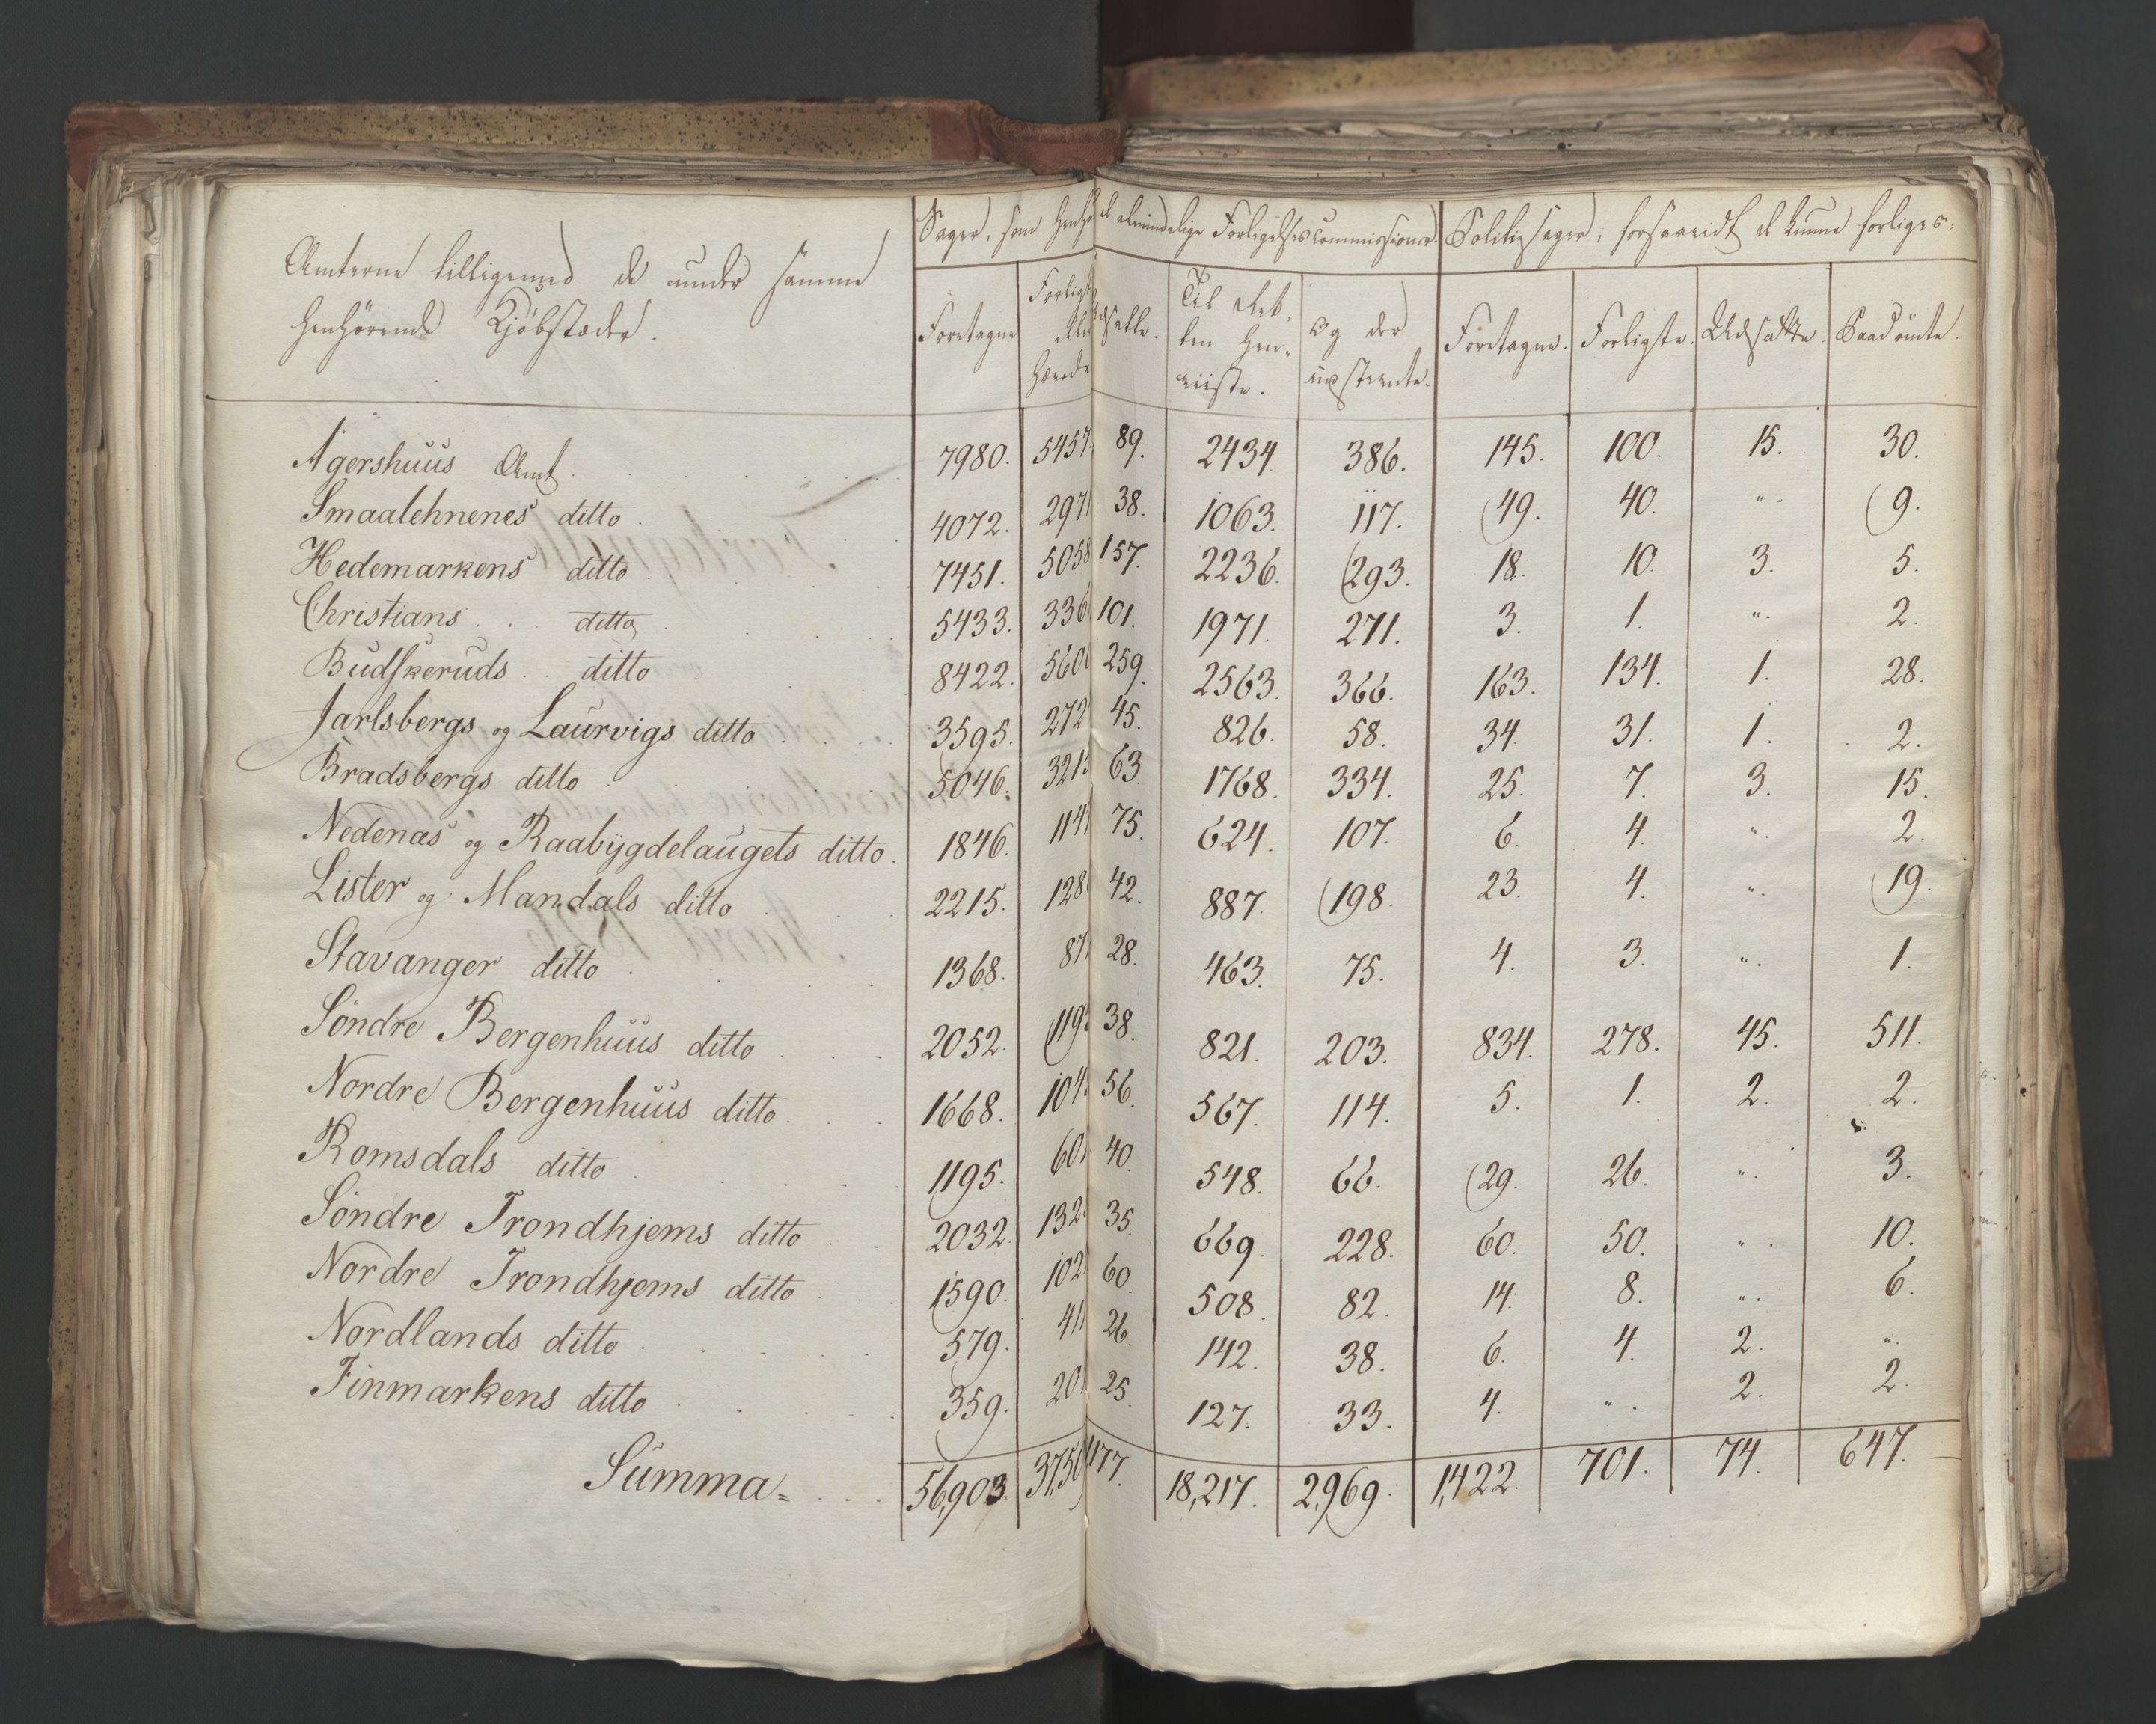 Sager, som henhø de almindelige Forligelsescommissioner. Politiesager, forsaavidt de kunne forliges.
Amterne tilligemed de under samme
henhörende Kjöbstæder.
Foretagne Forligte Udsatte. Til Retten Henviiste. Og der Foretagne. Forligte. Udsatte.
Agershuus Amt 7980. 5457 89. 2434. 386. 145. 100. 15. 30.
Smaalehnenes ditto 4072. 297 38. 1063. 117. 49. 40. " 9.
Hedemarkens ditto 7451. 5058 157. 2236. 293. 18. 10. 3. 5.
Christians ditto 5433. 336 101. 1971. 271. 3. 1. " 2.
Budskeruds ditto 8422. 560 259. 2563. 366. 163. 134. 1. 28.
Jarlsbergs og Laurvigs ditto 3595. 272 45. 826. 58. 34. 31. 1. 2.
Bradsbergs ditto 5046. 3213 63. 1768. 334. 25. 7. 3. 15.
Nedenas og Raabygdelaugets ditto. 1846. 114 75. 624. 107. 6. 4. " 2.
Lister og Mandals ditto 2215. 128 42. 887. 198. 23. 4. " 19.
Stavanger ditto 1368. 87 28. 463. 75. 4. 3. " 1.
Söndre Bergenhuus ditto 2052. 119 38. 821. 203. 834. 278. 45. 511.
Nordre Bergenhuus ditto. 1668. 104 56. 567. 114. 5. 1. 2. 2.
Romsdals ditto 1195. 60 40. 548. 66. 29. 26. " 3.
Söndre Trondhjems ditto 2032. 132 35. 669. 228. 60. 50. " 10.
Nordre Trondhjems ditto 1590. 102 60. 508. 82. 14. 8. " 6.
Nordlands ditto 579. 41 26. 142. 38. 6. 4. 2. "
Finmarkens ditto 359. 20 25. 127. 33. 4. " 2. 2.
Summa = 56,903. 37,50 177. 18,217. 2,969. 1,422. 701. 74. 647.